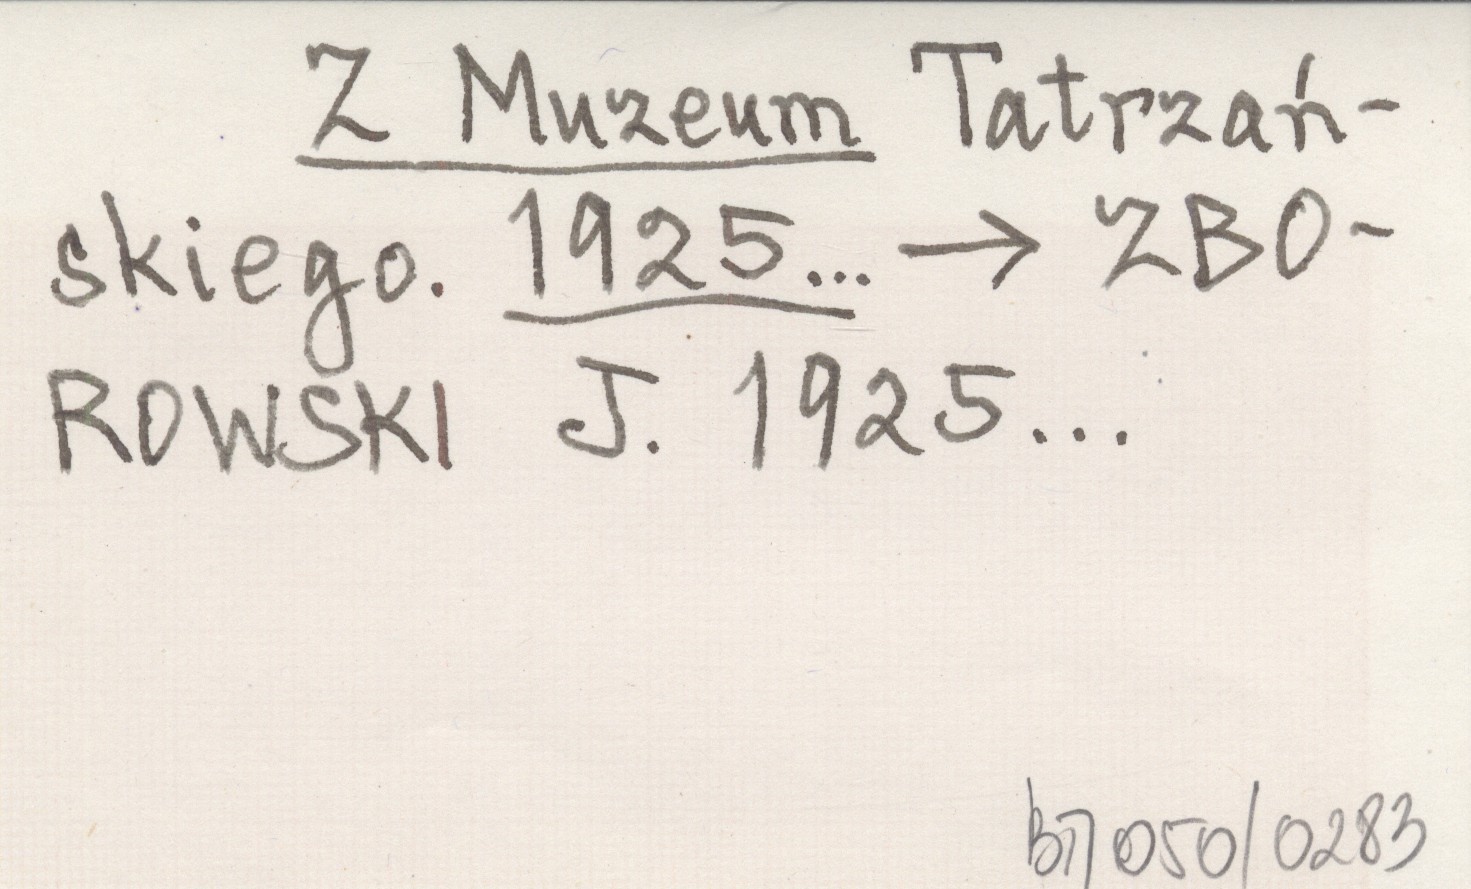 Z Muzeum Tatrzań-
skiego. 1925... → ZBO-
ROWSKI J. 1925...
050/0283